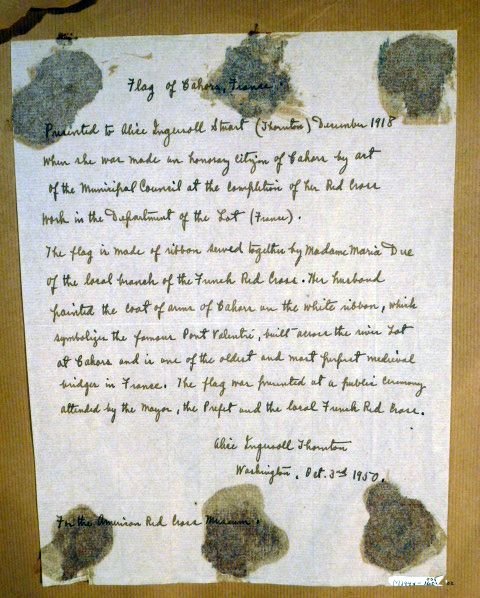 Flag of Cahors, France.
Presented to Alice Ingersoll Stuart (Thornton) December 1918
when she was made an honorary citizen of Cahors by act
of the Municipal Council at the completion of her Red Cross
work in the Department of the Lot (France).
The flag is made of ribbon sewed together by Madame Maria Due
of the local branch of the French Red Cross. Her husband
painted the coat of arms of Cahors on the white ribbon, which
symbolizes the famous Pont Valentré, built across the river Lot
at Cahors and is one of the oldest and most perfect medieval
bridges in France. The flag was presented at a public ceremony
attended by the Mayor, the Prefet and the local French Red Cross.
Alice Ingersoll Thornton
Washington, Oct. 3rd 1950.
For the American Red Cross Museum.